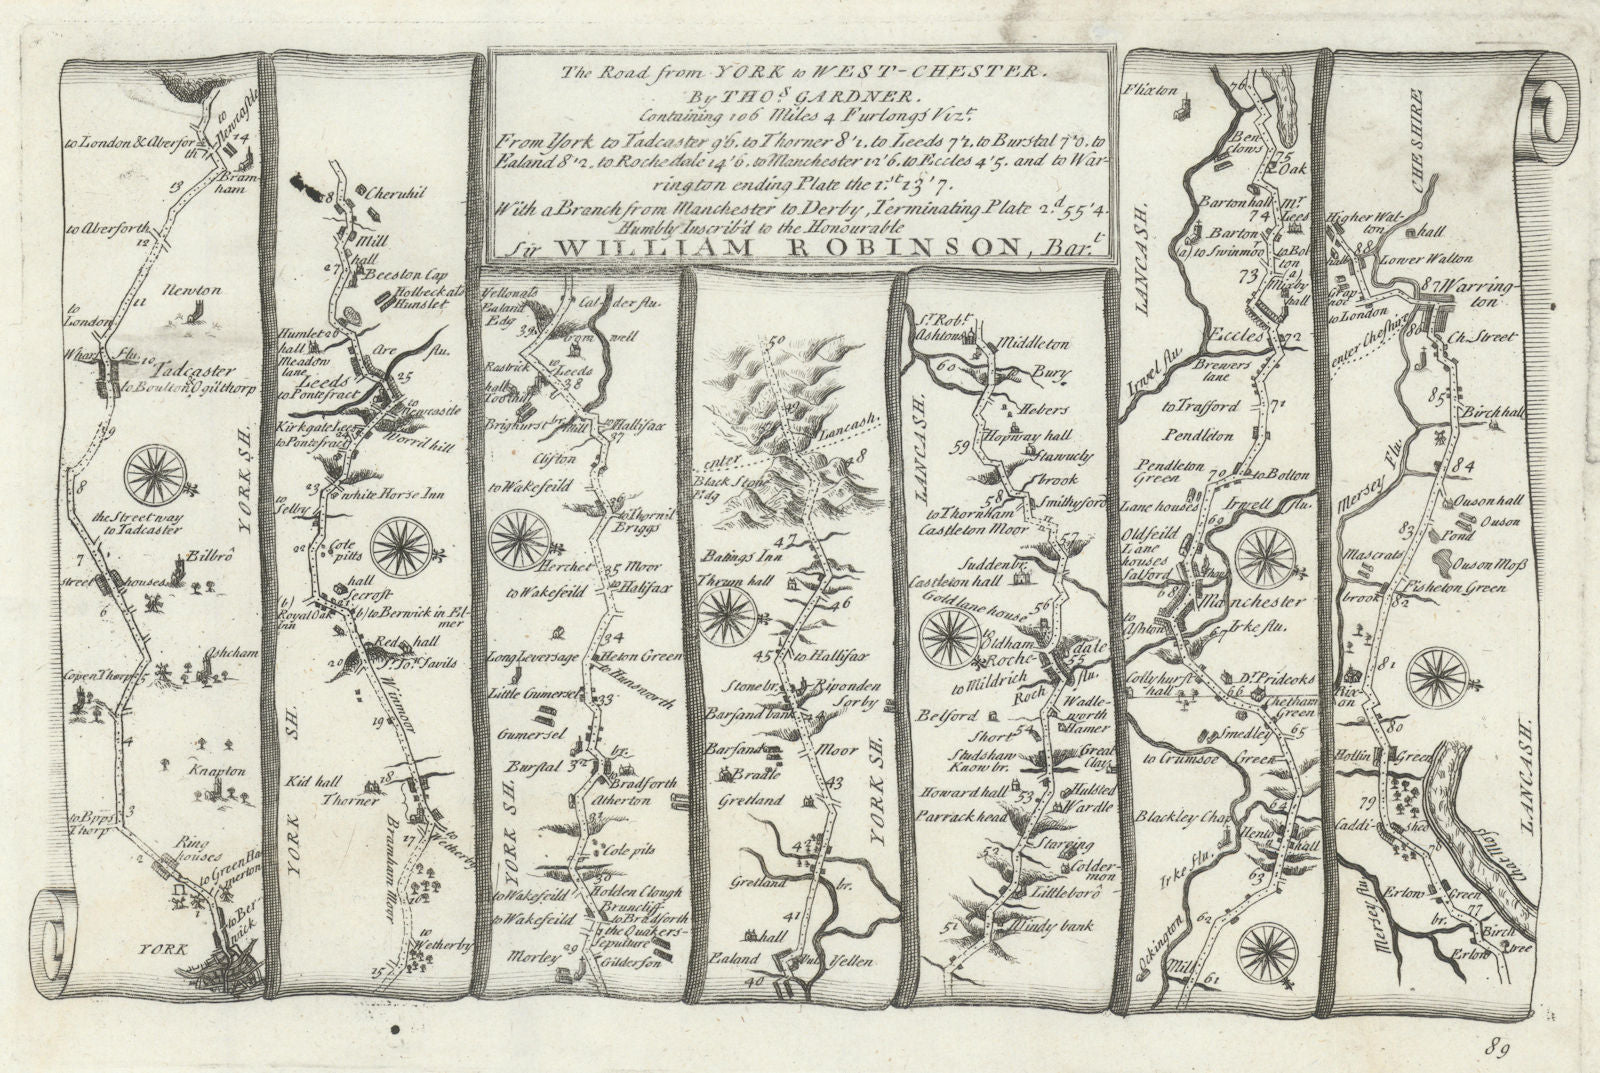 The Road from YORK to WEST-CHESTER.
By THO.S GARDNER.
Containing 106 Miles 4 Furlongs Vizt.
From York to Tadcaster 9'6, to Thorner 8'1, to Leeds 7'2, to Burstal 7'0, to
Ealand 8'2, to Rochedale 14'6, to Manchester 12'6, to Eccles 4'5. and to War-
rington ending Plate the 1.st 13'7.
With a Branch from Manchester to Derby, Terminating Plate 2.d 55'4.
Humbly Inscrib'd to the Honourable
Sir WILLIAM ROBINSON, Bar.t
to Newcastle
14
to London & Aberforth
Bramham
13
to Aberforth
12
11
Newton
to London
Wharf Flu.
10
Tadcaster
to Boulton Ogilthorp
9
YORK SH.
8
the Street way
to Tadcaster
7
Bilbrô
street houses
6
Ashcham
Copen Thorp
5
4
Knapton
3
to Bpps Thorp
2
Ring houses
to Green Hamerton
to Berwick
YORK
28
Cheruhil
Mill
hall
27
Beeston Cap
Holbeck als Hunslet
Humlet hall
26
Are flu.
Meadow lane
Leeds
25
to Pontefract
to Newcastle
Kirkgate Lees
24
Worril hill
to Pontefract
23
White Horse Inn
to Selby
22
Cole pitts
hall
Secroft
(b)
(b) to Berwick in Elmer
Royal Oak Inn
Red hall
Sr. Jon. Savils
20
Winmoor
19
18
Kid hall
Thorner
17
to Wetherby
Bramham Moor
16
to Wetherby
15
YORK SH.
Yellon als Ealand Edg
Calder flu.
39
Bromwell
Rastrick
to Leeds
38
hall
Toothil
Brighurst br.
mill
to Hallifax
37
Clifton
to Wakefeild
36
to Thornil Briggs
Herchet Moor
35
to Wakefeild
to Halifax
34
Long Leversage
Heton Green
to Hunsworth
Little Gumersel
33
Gumersel
br.
Burstal
32
to Bradforth
Atherton
31
Cole pits
30
to Wakefeild
Holden Clough
Bruncliff
to Wakefeild
to Bradforth
the Quakers sepulture
29
Morley
Gilderson
YORK SH.
50
49
enter Lancash.
48
Black Stone Edg
47
Batings Inn
Thrum hall
46
45
to Hallifax
Stone br.
Riponden
Sorby
Barsand bank
44
Barsand
Moor
Bradle
43
Gretland
42
Gretland br.
41
hall
Ealand
Yellen
40
YORK SH.
Sr. Robt. Ashtons
Middleton
60
Bury
Hebers
59
Hopway hall
Stanucly
brook
58
Smithyford
to Thornham
Castleton Moor
57
Sudden br.
Castleton hall
56
Goldlane house
to Oldham
Rochedale
55
to Mildrich
Roch flu.
Wadleworth
Hamer
Belford
Short
54
Studshaw
Know br.
Great Clays
Howard hall
53
Hulsted
Wardle
Parrack head
52
Stareing
Coldermon
Littleborô
51
Windy bank
LANCASH.
Flixton
76
Benclows
75
Oak
Barton hall
74
Mr. Lees
Barton
(a) to Swinmoor
to Bolton
73
(a) Mixby hall
Eccles
72
Irwel flu.
Brewers lane
to Trafford
71
Pendleton
Pendleton Green
70
to Bolton
Lane houses
Irwell flu.
69
Oldfeild Lane houses
Salford
68
Manchester
to Ashton
67
Irke flu.
Collyhurst hall
Dr. Prideoks
66
Chetham Green
65
Smedley
to Crumsoe Green
64
Blackley Chap
Hento hall
63
Irke flu.
62
Ockington Mill
61
LANCASH.
CHESHIRE
Higher Walton
hall
88
Lower Walton
hall
Grapnor
87
Warrington
to London
86
enter Cheshire
Ch. Street
85
Birch hall
Mersey Flu.
84
Ouson hall
Ouson
Pond
83
Ouson Moss
Mascrats
brook
82
Fisheton Green
81
Rixon
80
Hollin Green
79
Caddished
78
Chat Moss
Mersey flu.
Erlow Green
77
br.
Birch tree
Erlow
LANCASH.
89